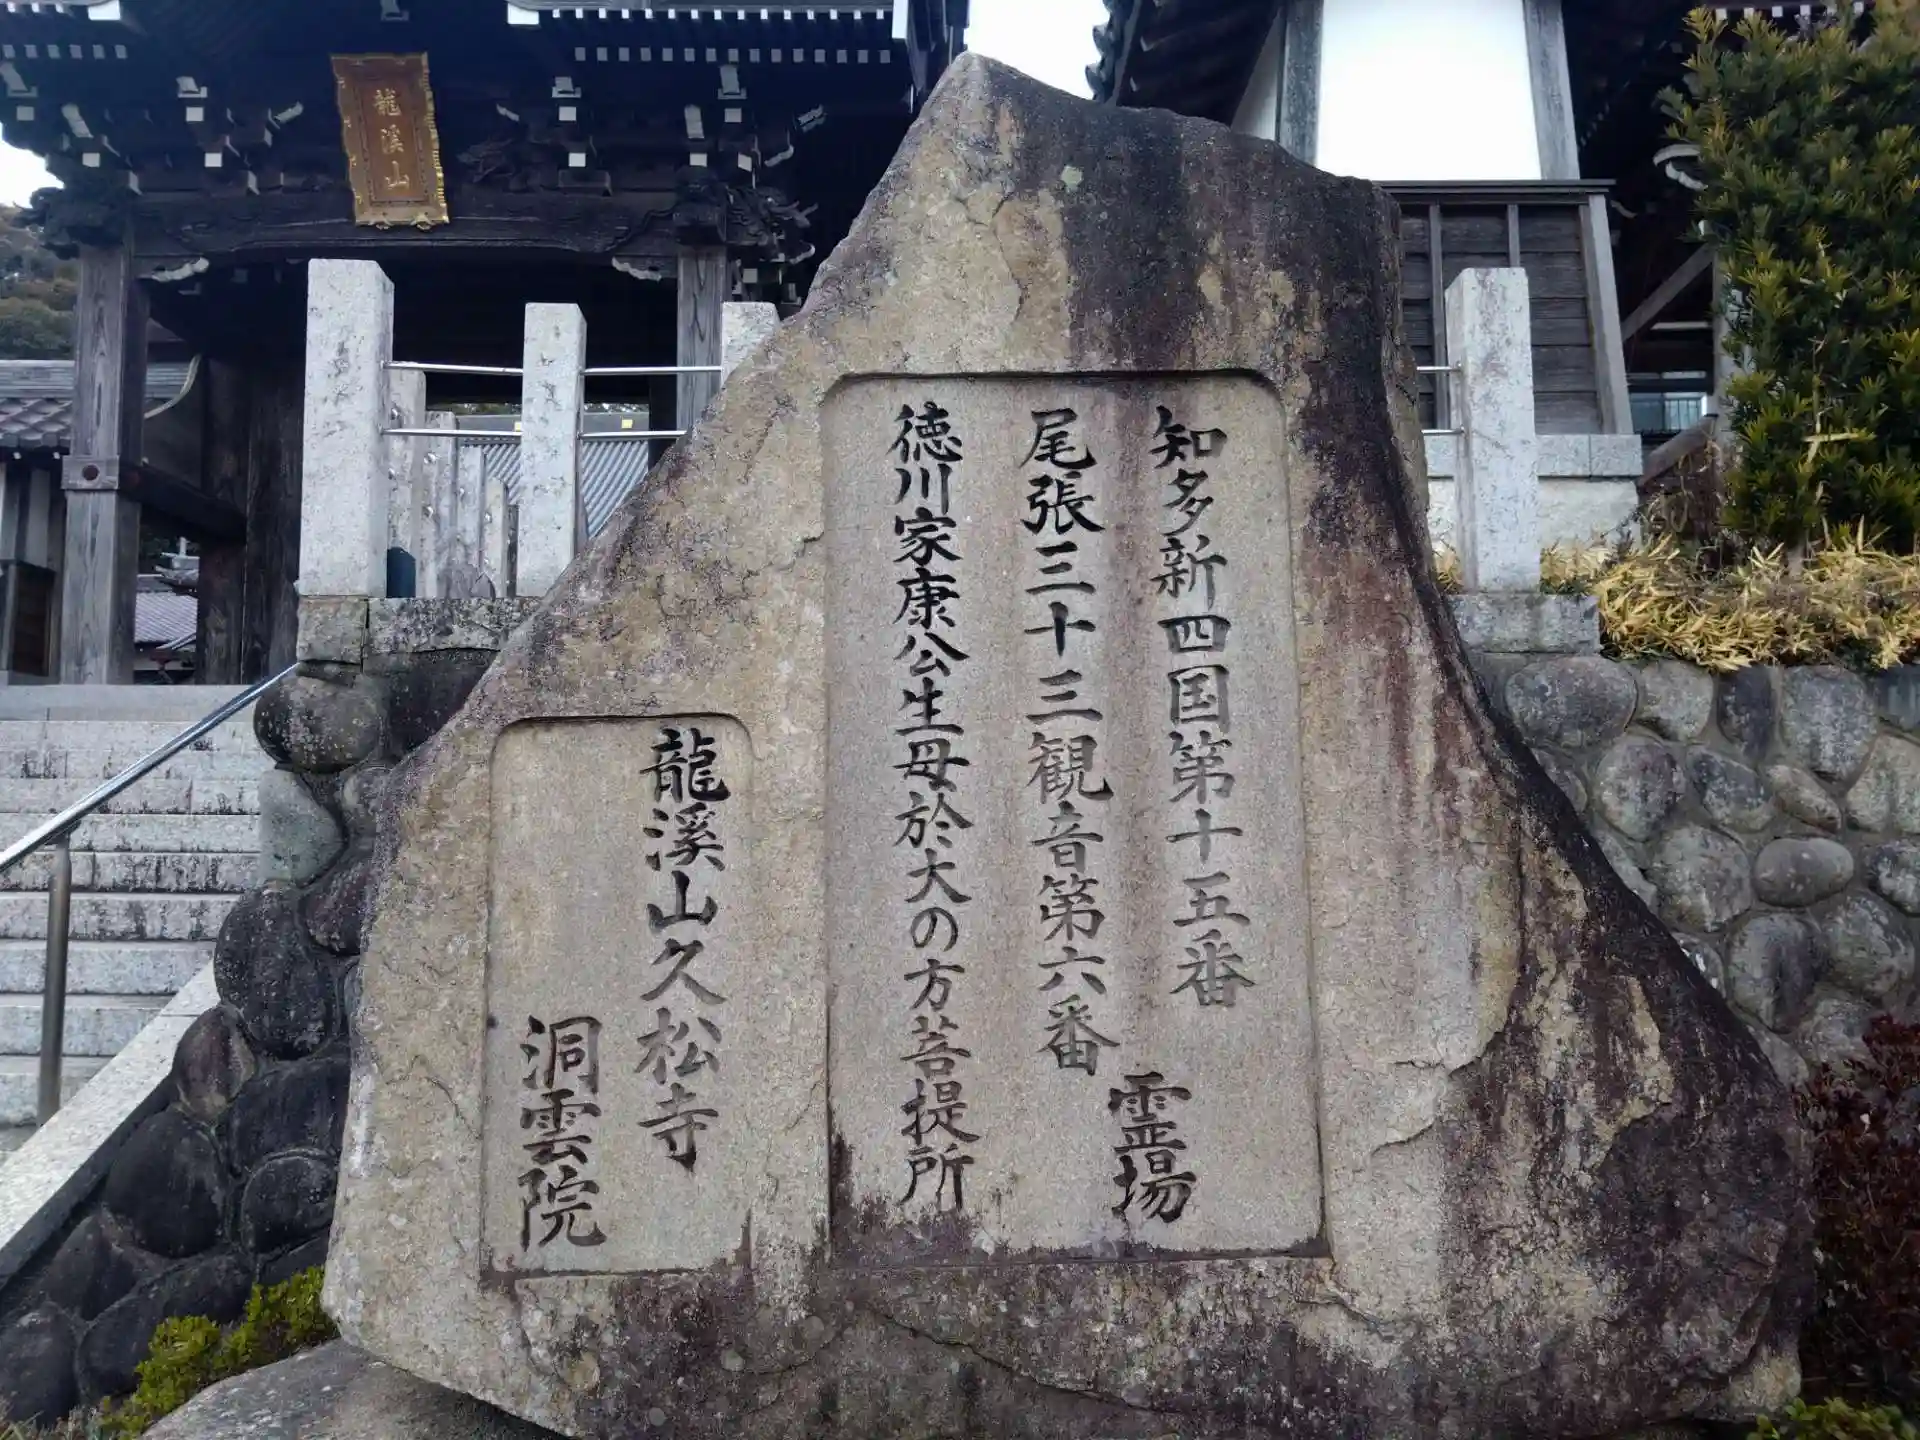 龍溪山
知多新四国第十五番
尾張三十三観音第六番
霊場
徳川家康公生母於大の方菩提所
龍溪山久松寺
洞雲院